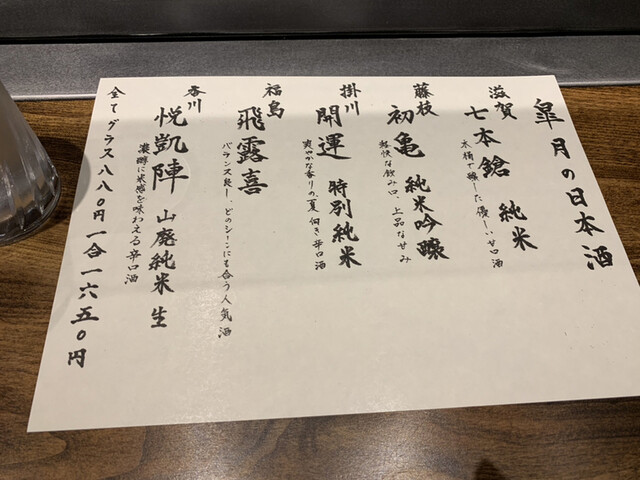 皐月の日本酒
滋賀
七本鎗 純米
木桶で醸した優しい甘口酒
藤枝
初亀 純米吟醸
軽快な飲み口、上品な甘み
掛川
開運 特別純米
爽やかな香りの、夏向き辛口酒
福島
飛露喜
バランス良し、どのシーンにも合う人気酒
香川
悦凱陣 山廃純米 生
濃醇に米感を味わえる辛口酒
全てグラス八八〇円 一合一六五〇円